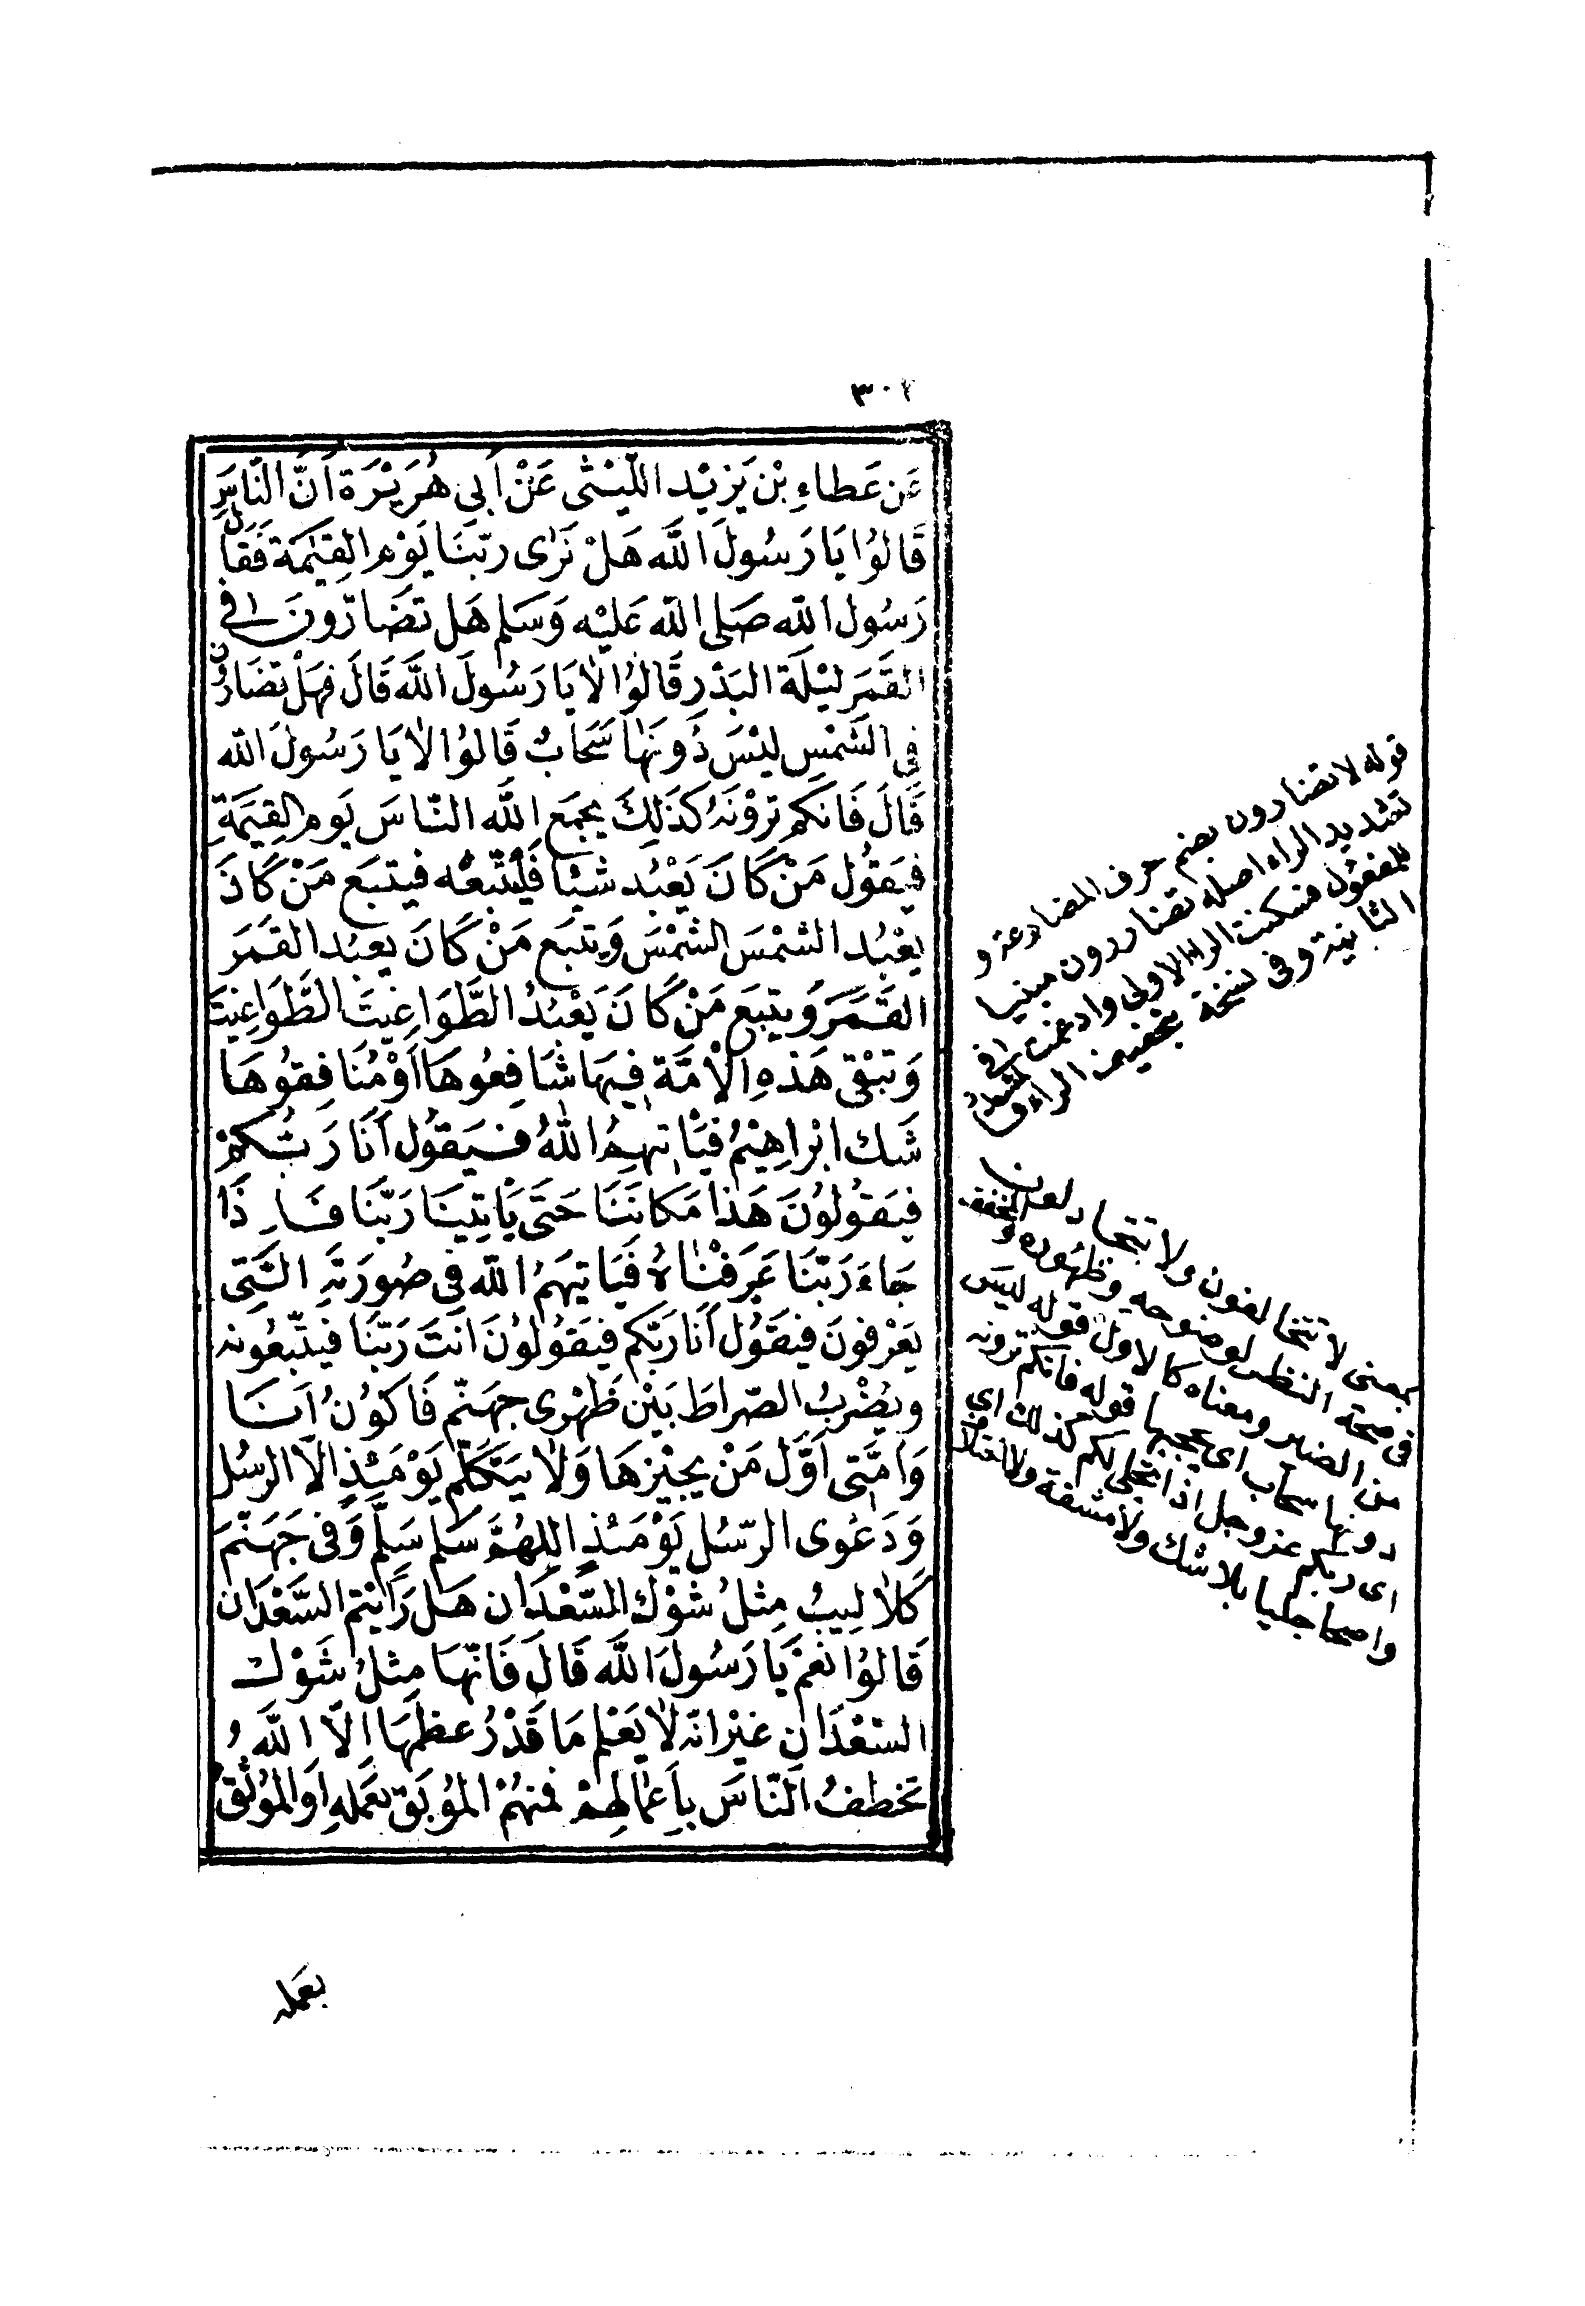 ٣٠٢
عَن عَطاءِ بْن يَزيْد اللّيْثى عَنْ اَبى هُرَيْرَة اَنَّ النّاسَ
قَالوُا يَا رَسُولَ اللَّه هَلْ نَرٰى ربّنَا يَوْم القِيٰمَة فَقَال
رَسُول الله صَلى الله عَليْه وَسَلم هَل تضَارّونَ فى
القَمَر ليْلَة البَدْر قَالوُا لاٰ يَا رَسُولَ اللَّه قَالَ فهَلْ تضَارُّون
فِى الشَّمْس ليْسَ دُونهَا سَحَابٌ قَالوُا لاٰ يَا رَسُولَ الله
قَالَ فَانكم ترَوْنهُ كَذَلِكَ يجمَع اللَّه النّاسَ يَوم القِيَمَةِ
فيَقوُل مَنْ كَانَ يَعْبُد شيْا فَليتّبعْه فيتبَع مَنْ كَانَ
يعْبُد الشمْسَ الشمْسَ وَيتبَع مَنْ كَانَ يعبُد القمَرَ
القَمَرَ وَيتبَع مَنْ كَانَ يَعْبُدُ الطَّوَاغِيتَ الطَّوَاغِيتَ
وَتبْقى هَذهِ الْامَّة فِيهَا شَافِعُوهَا اَوْ مُنَافِقُوهَا
شَك ابْراهِيْمُ فيَاْتِيهِمُ اللّٰهُ فيَقوُل اَنَا رَبُّكمْ
فيَقوُلوُنَ هَذا مَكاننَا حَتّى يَاْتِينَا رَبّنَا فَاِذَا
جَاءَ رَبّنَا عَرَفْنَاهُ فيَاتيهمُ الله فى صُورَتهِ الَّتى
يَعْرفونَ فيَقوُل اَنَا رَبّكم فيَقوُلوُنَ اَنتَ رَبّنَا فيتّبعُونه
ويُضْربُ الصّراطَ بَيْن ظَهْرى جهَنّم فَاكوُنُ اَنَا
وَامَّتى اَوَّل مَنْ يجيْزهَا وَلاٰ يتَكَلّم يَوْمَئِذٍ الاّ الرسُل
وَدَعْوى الرّسُل يَوْمَئذٍ اللهُمَّ سَلم سَلّم وَفى جَهَنّمَ
كَلاٰليبُ مِثلُ شوْك السّعْدَان هَل رَاَيْتم السَّعْدَان
قَالوُا نعَمْ يَا رَسُولَ اللَّه قَالَ فَانّهَا مثلُ شَوْك
السّعْدَان غيْر انّه لاٰ يَعْلم مَا قَدْرُ عظمهَا الاّ اللَّهُ
تخطفُ النّاسَ باَعمالهمْ فمنهُمْ المُوبَق بعَملهِ اَو المُوثق
بعمله
قوله لا تضارون بضم حرف المضارعة و
تشديد الراء اصله تضاررون مبنيا
للمفعول فسكنت الراء الاولى وادغمت فى
الثانية وفى نسخة بتخفيف الراء
بمعنى لا تتخالفون ولا تتجادلون
فى صحة النظر لوضوحه وظهوره و
من الضير ومعناه كالاول قوله ليس
دونها سحاب اى يحجبها قوله فانكم ترونه
اى ربكم عز وجل اذا تجلى لكم كذلك اى
واضحا جليا بلا شك ولا مشقة ولا اختلاف